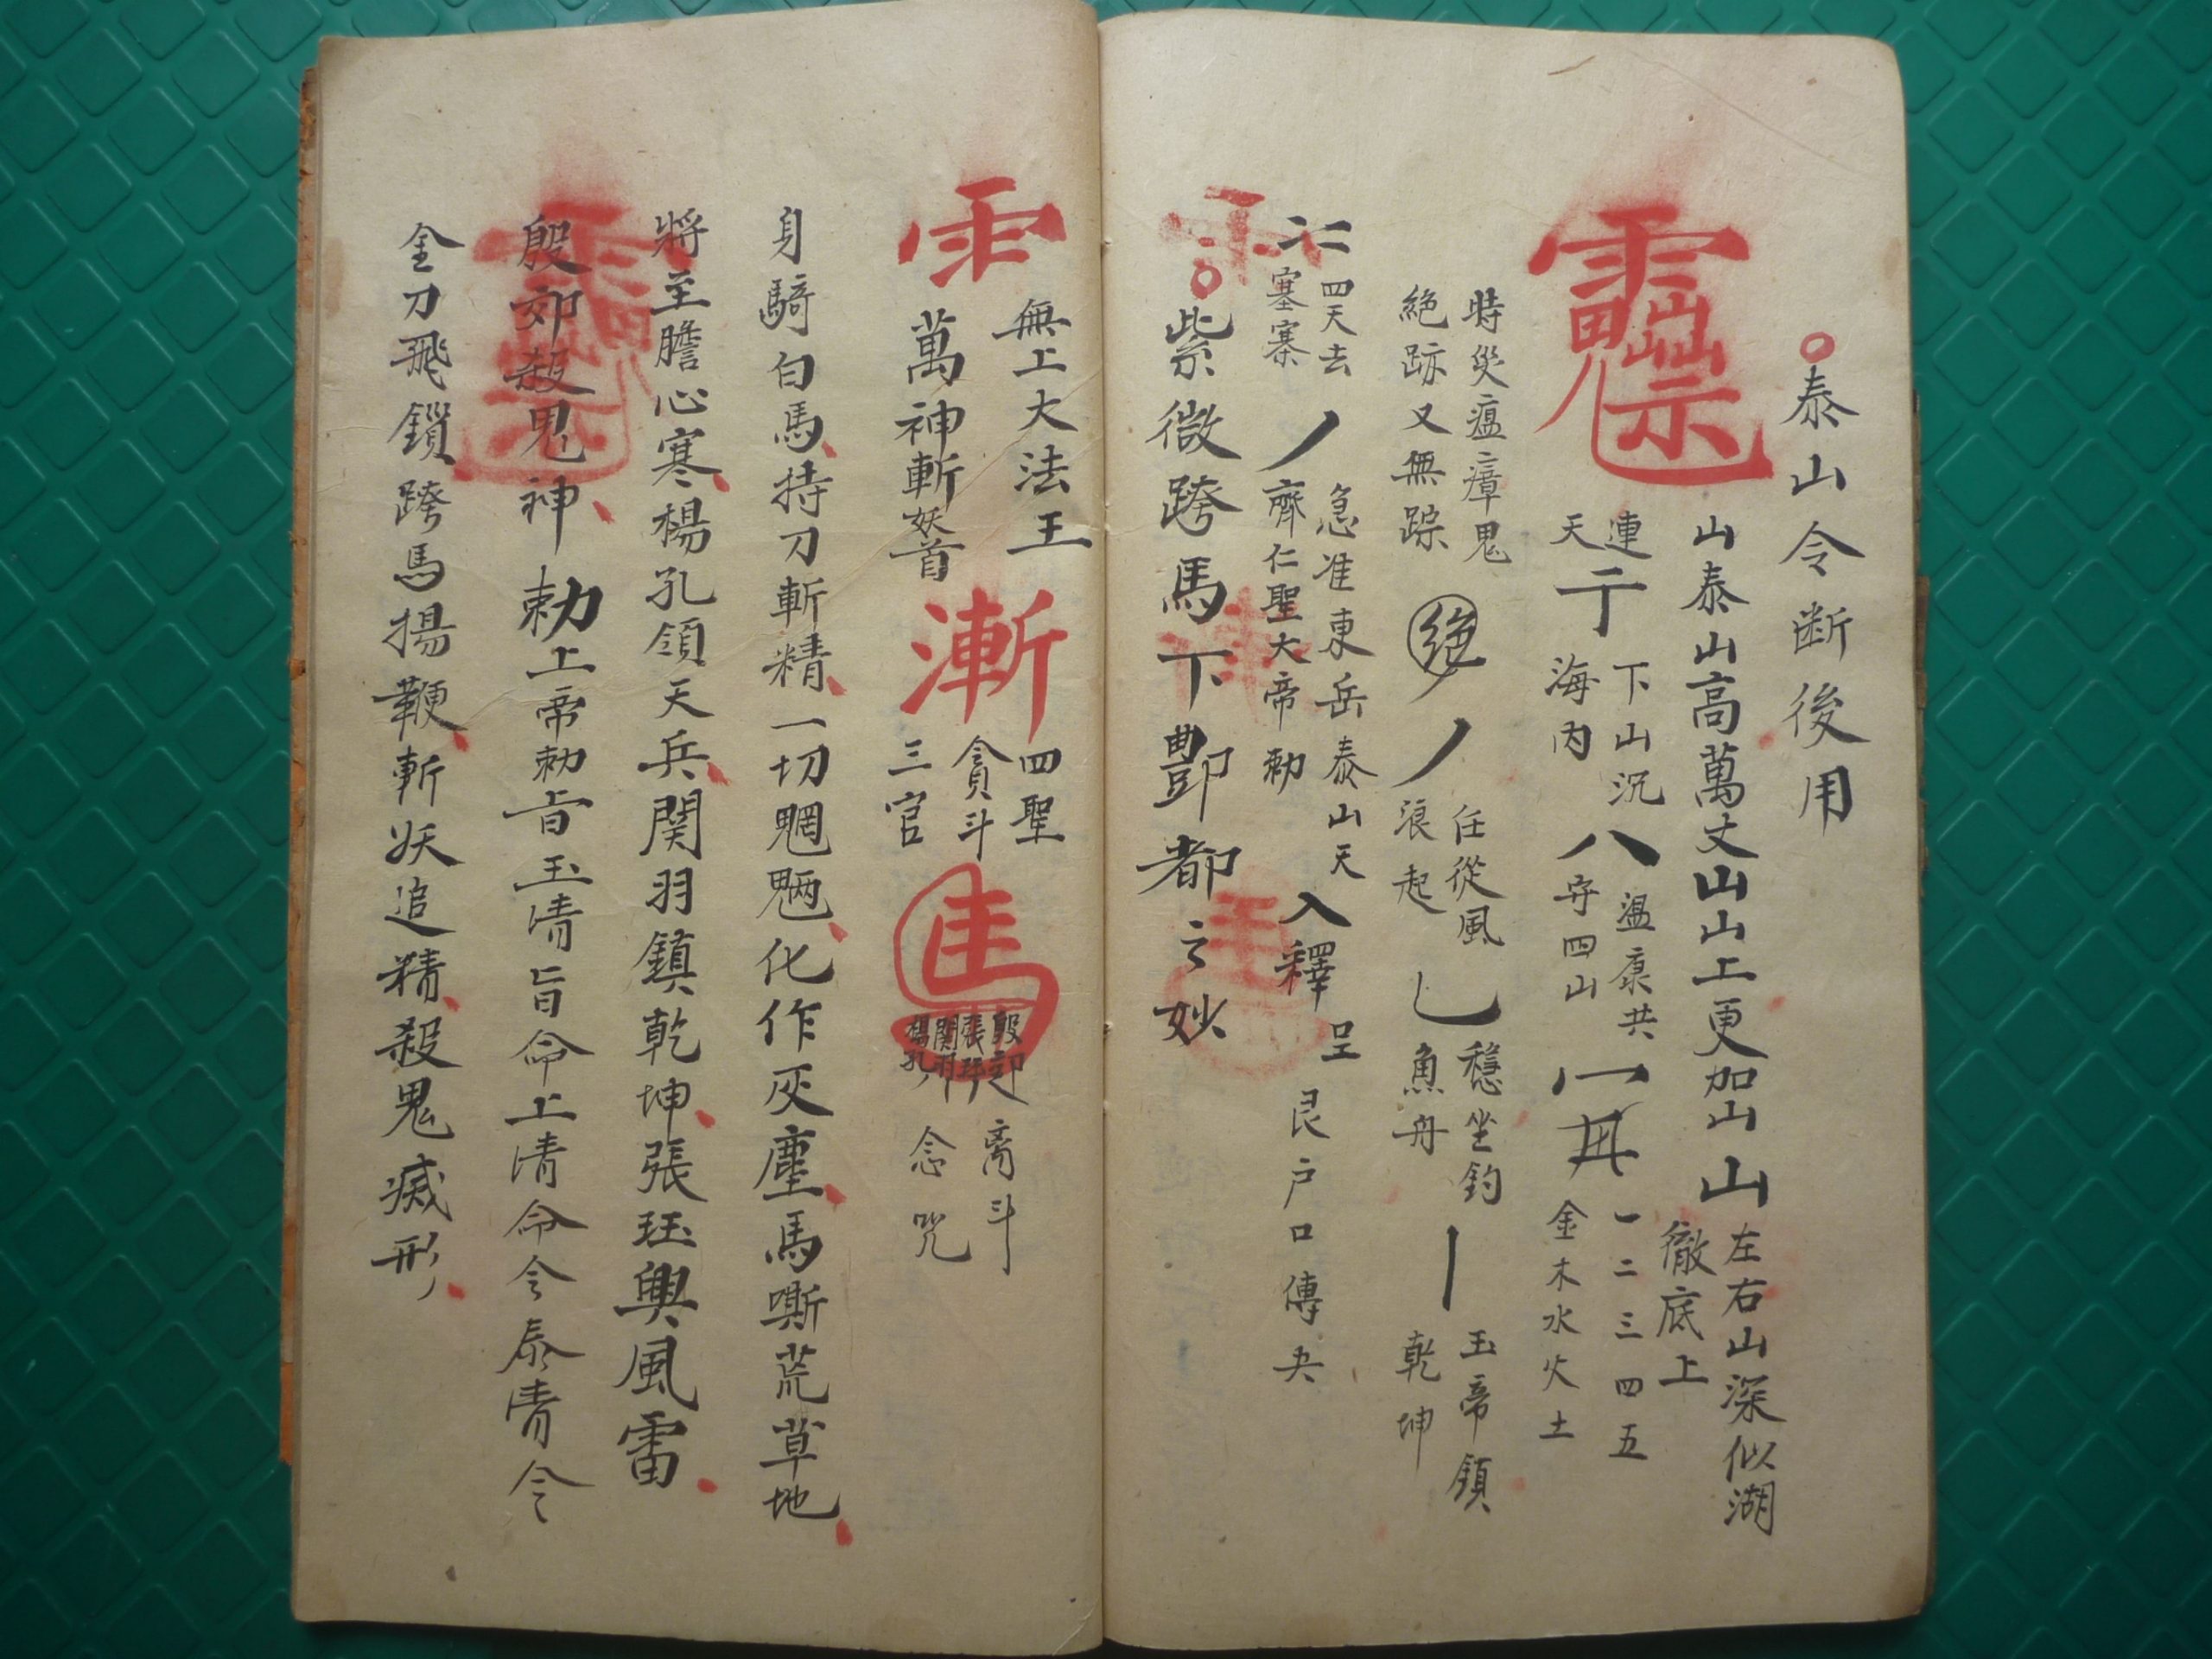 泰山令断後用
山泰山高萬丈山山上更加山山
左右山深似湖
徹底上
連天
下山沉
海内
八
溫康共
守四山
一二三四五
金木水火土
時災瘟瘴鬼
絕跡又無踪
絕
任從風
浪起
穩坐釣
魚舟
玉帝鎖
乾坤
四天去
塞寨
急准東岳泰山天
齊仁聖大帝勅
入釋
呈
艮户口傳夬
紫微跨馬下酆都之妙
無上大法王
萬神斬妖首
漸
四聖
貪斗
三官
殷郊
張珏
関羽
楊孔
斗
念咒
身騎白馬持刀斬精一切魍魎化作灰塵馬嘶荒草地
將至膽心寒楊孔領天兵関羽鎮乾坤張珏興風雷
殷郊殺鬼神勅上帝勅旨玉清旨命上清命令泰清令
金刀飛鎖跨馬揚鞭斬妖追精殺鬼滅形